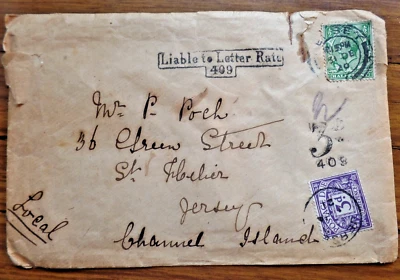 Liable to Letter Rate
409
JERSEY
HALF
Mr P. Poch
36 Green Street
St Helier
Jersey
Channel Islands
Local
3
409